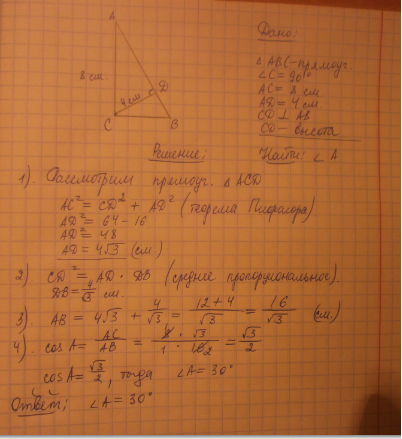 A
Дано:
△ABC-прямоуг.
∠C = 90°
AC = 8 см
AD = 4 см
CD ⊥ AB
CD - высота
8 см.
4 см.
D
C
B
Решение:
Найти: ∠A
1). Рассмотрим прямоуг. △ACD
AC² = CD² + AD² (теорема Пифагора)
AD² = 64 - 16
AD² = 48
AD = 4√3 (см)
2) CD² = AD · DB (среднее пропорциональное).
DB = 4/√3 см.
3). AB = 4√3 + 4/√3 = 12+4/√3 = 16/√3 (см.)
4). cos A = AC/AB = 8 · √3/1 · 16 2 = √3/2
cos A = √3/2, тогда ∠A = 30°
Ответ: ∠A = 30°